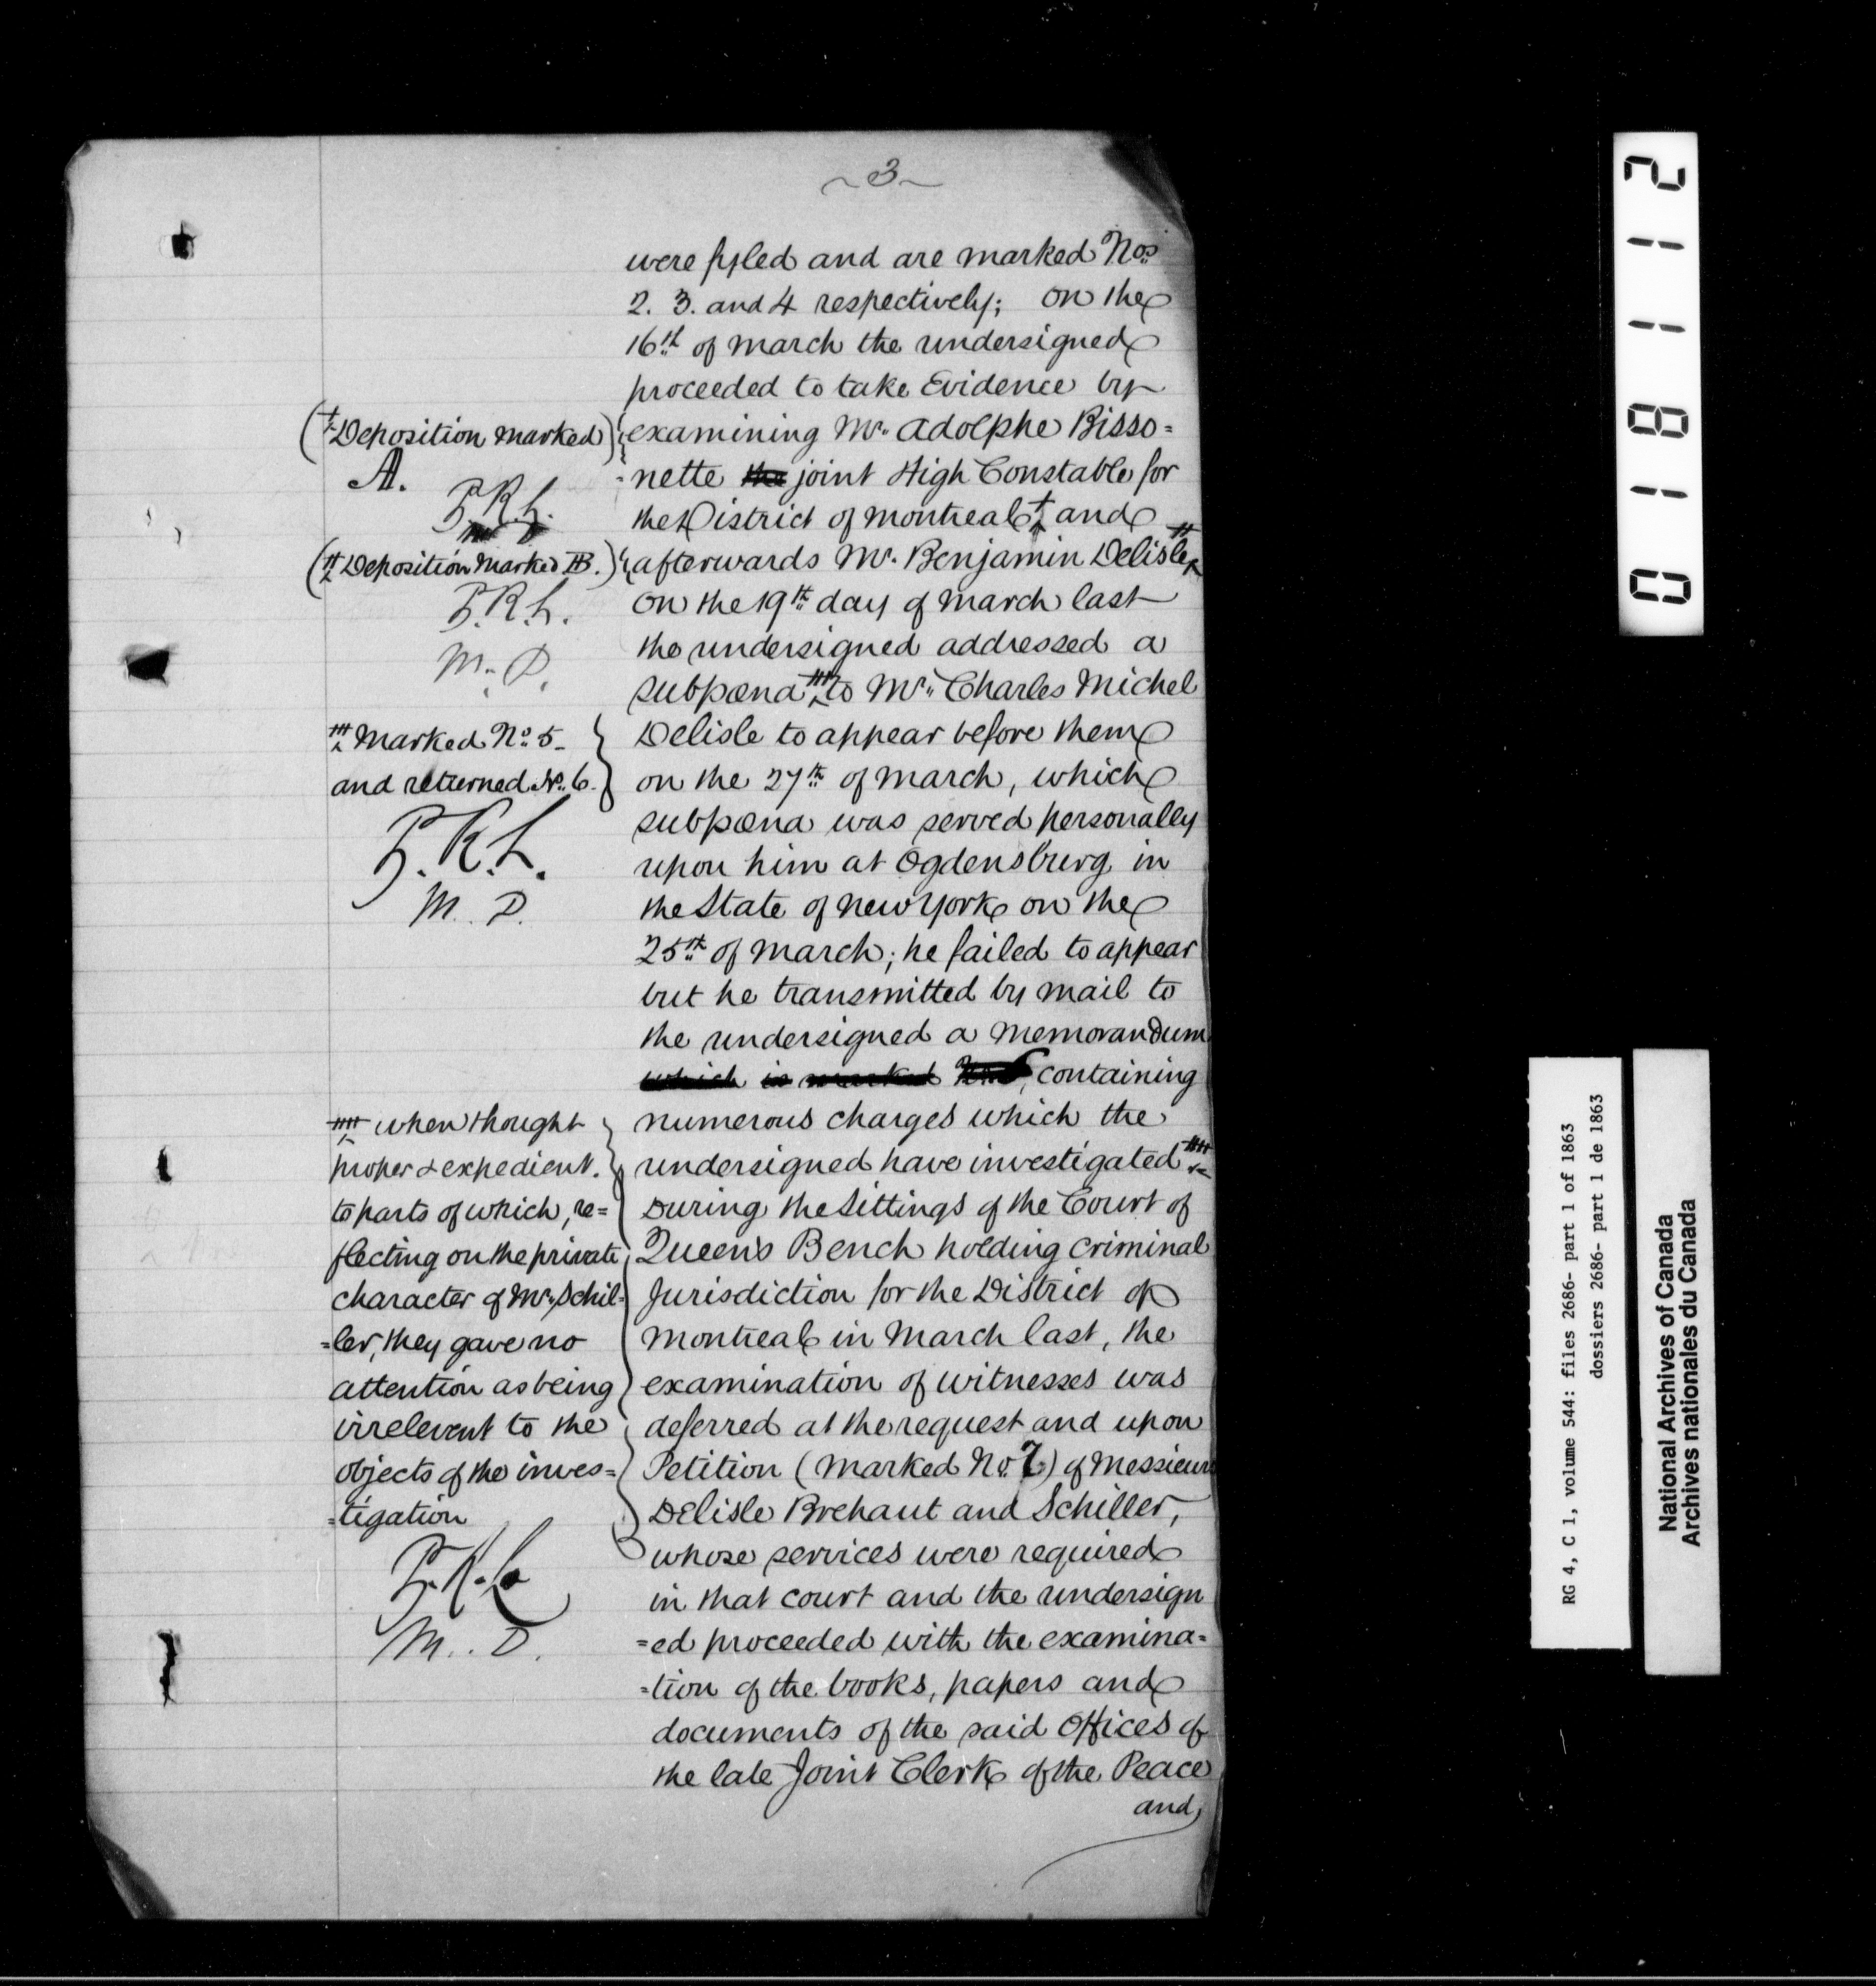 ~3~
were fyled and are marked Nos
2. 3. and 4 respectively; on the
16th of March the undersigned
proceeded to take Evidence by
examining Mr. Adolphe Bisso=
=nette the joint High Constable for
the District of Montreal and
afterwards Mr. Benjamin Delisle
on the 19th day of March last
the undersigned addressed a
subpœna to Mr. Charles Michel
Delisle to appear before them
on the 27th of March, which
subpœna was served personally
upon him at Ogdensburg in
the State of New York on the
25th of March; he failed to appear
but he transmitted by mail to
the undersigned a Memorandum
which is marked containing
numerous charges which the
undersigned have investigated
During the Sittings of the Court of
Queen's Bench holding criminal
Jurisdiction for the District of
Montreal in March last, the
examination of witnesses was
deferred at the request and upon
Petition (marked No. 7) of Messieurs
Delisle Brehaut and Schiller,
whose services were required
in that court and the undersign
=ed proceeded with the examina=
=tion of the books, papers and
documents of the said Offices of
the late Joint Clerk of the Peace
and,
(Deposition marked)
A.
(Deposition Marked B.)
M. D.
Marked No. 5-
and returned No. 6.
M. D.
when thought
proper & expedient.
to parts of which, re=
flecting on the private
character of Mr. Schil=
=ler, they gave no
attention as being
irrelevent to the
objects of the inves=
=tigation
M. D.
018112
RG 4, C 1, volume 544: files 2686- part 1 of 1863
dossiers 2686- part 1 de 1863
National Archives of Canada
Archives nationales du Canada